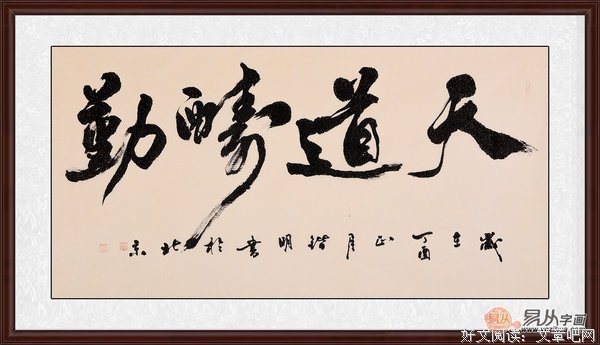 天道醻勤
歲在丁酉正月鍇明書於北京
易从字画
好文阅读：文章吧网